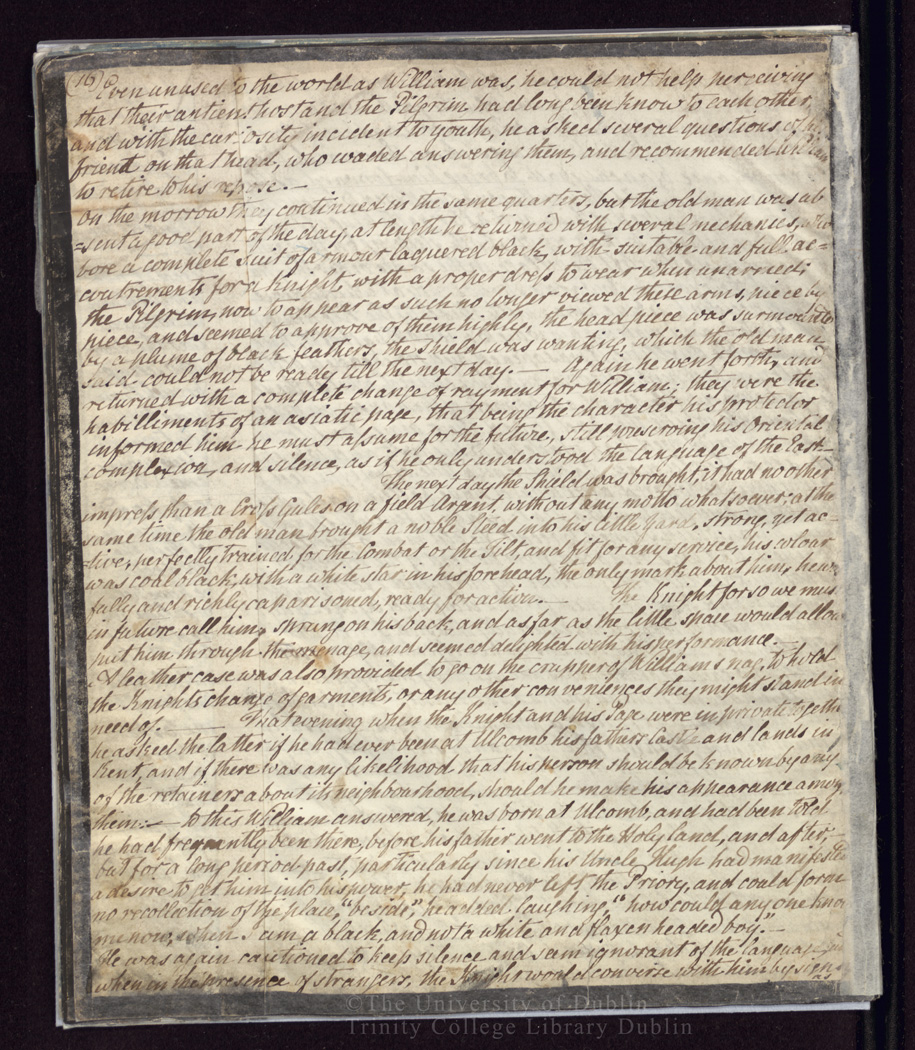 (16)
Even unused to the world as William was, he could not help perceiving
that their antient host and the Pilgrim had long been know to each other,
and with the curiosity incident to youth, he asked several questions of his
friend on that head, who waded answering them, and recommended William
to retire to his repose. —
On the morrow they continued in the same quarters, but the old man was ab
=sent a good part of the day, at length he returned with several mechanics, who
bore a complete Suit of armour laquered black, with suitable and full ac=
coutrements for a Knight, with a proper dress to wear when unarmed;
the Pilgrim, now to appear as such no longer viewed these arms, piece by
piece, and seemed to approve of them highly, the head piece was surmounted
by a plume of black feathers, the shield was wanting, which the old man
said could not be ready till the next day. — Again he went forth, and
returned with a complete change of rayment for William; they were the
habilliments of an asiatic page, that being the character his protector
informed him he must assume for the future, still preserving his Oriental
complexion, and silence, as if he only understood the language of the East —
The next day the Shield was brought; it had no other
impress than a Cross Gules on a field Argent, without any motto whatsoever; at the
same time the old man brought a noble Steed into his little yard, strong, yet ac=
tive, perfectly trained for the Combat or the Tilt, and fit for any service, his colour
was coal black, with a white star in his forehead, the only mark about him, he was
fully and richly caparisoned, ready for action. — The Knight for so we must
in future call him, sprung on his back, and as far as the little space would allow
put him through the menage, and seemed delighted with his performance. —
A leather case was also provided to go on the crupper of Williams nag, to hold
the Knights change of garments, or any other conveniences they might stand in
need of. — That evening when the Knight and his Page were in private together
he asked the latter if he had ever been at Ulcomb his fathers Castle and lands in
Kent, and if there was any likelihood that his person should be known by any
of the retainers about its neighbourhood, should he make his appearance among
them: — to this William answered, he was born at Ulcomb, and had been told
he had frequently been there, before his father went to the Holy land, and after,
but for a long period past, particularly since his Uncle Hugh had manifested
a desire to get him into his power, he had never left the Priory, and could form
no recollection of the place, "beside," he added laughing, "how could any one know
me now, when I am a black, and not a white and flaxen headed boy." —
He was again cautioned to keep silence and seem ignorant of the language
when in the presence of strangers, the Knight would converse with him by signs
©The University of Dublin
Trinity College Library Dublin